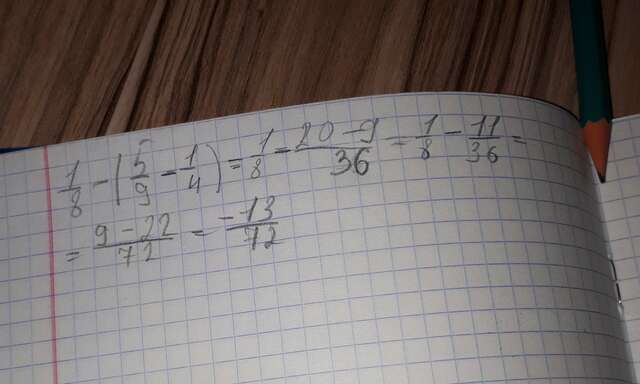 1/8 - (5/9 - 1/4) = 1/8 - (20-9)/36 = 1/8 - 11/36 =
= (9-22)/72 = -13/72